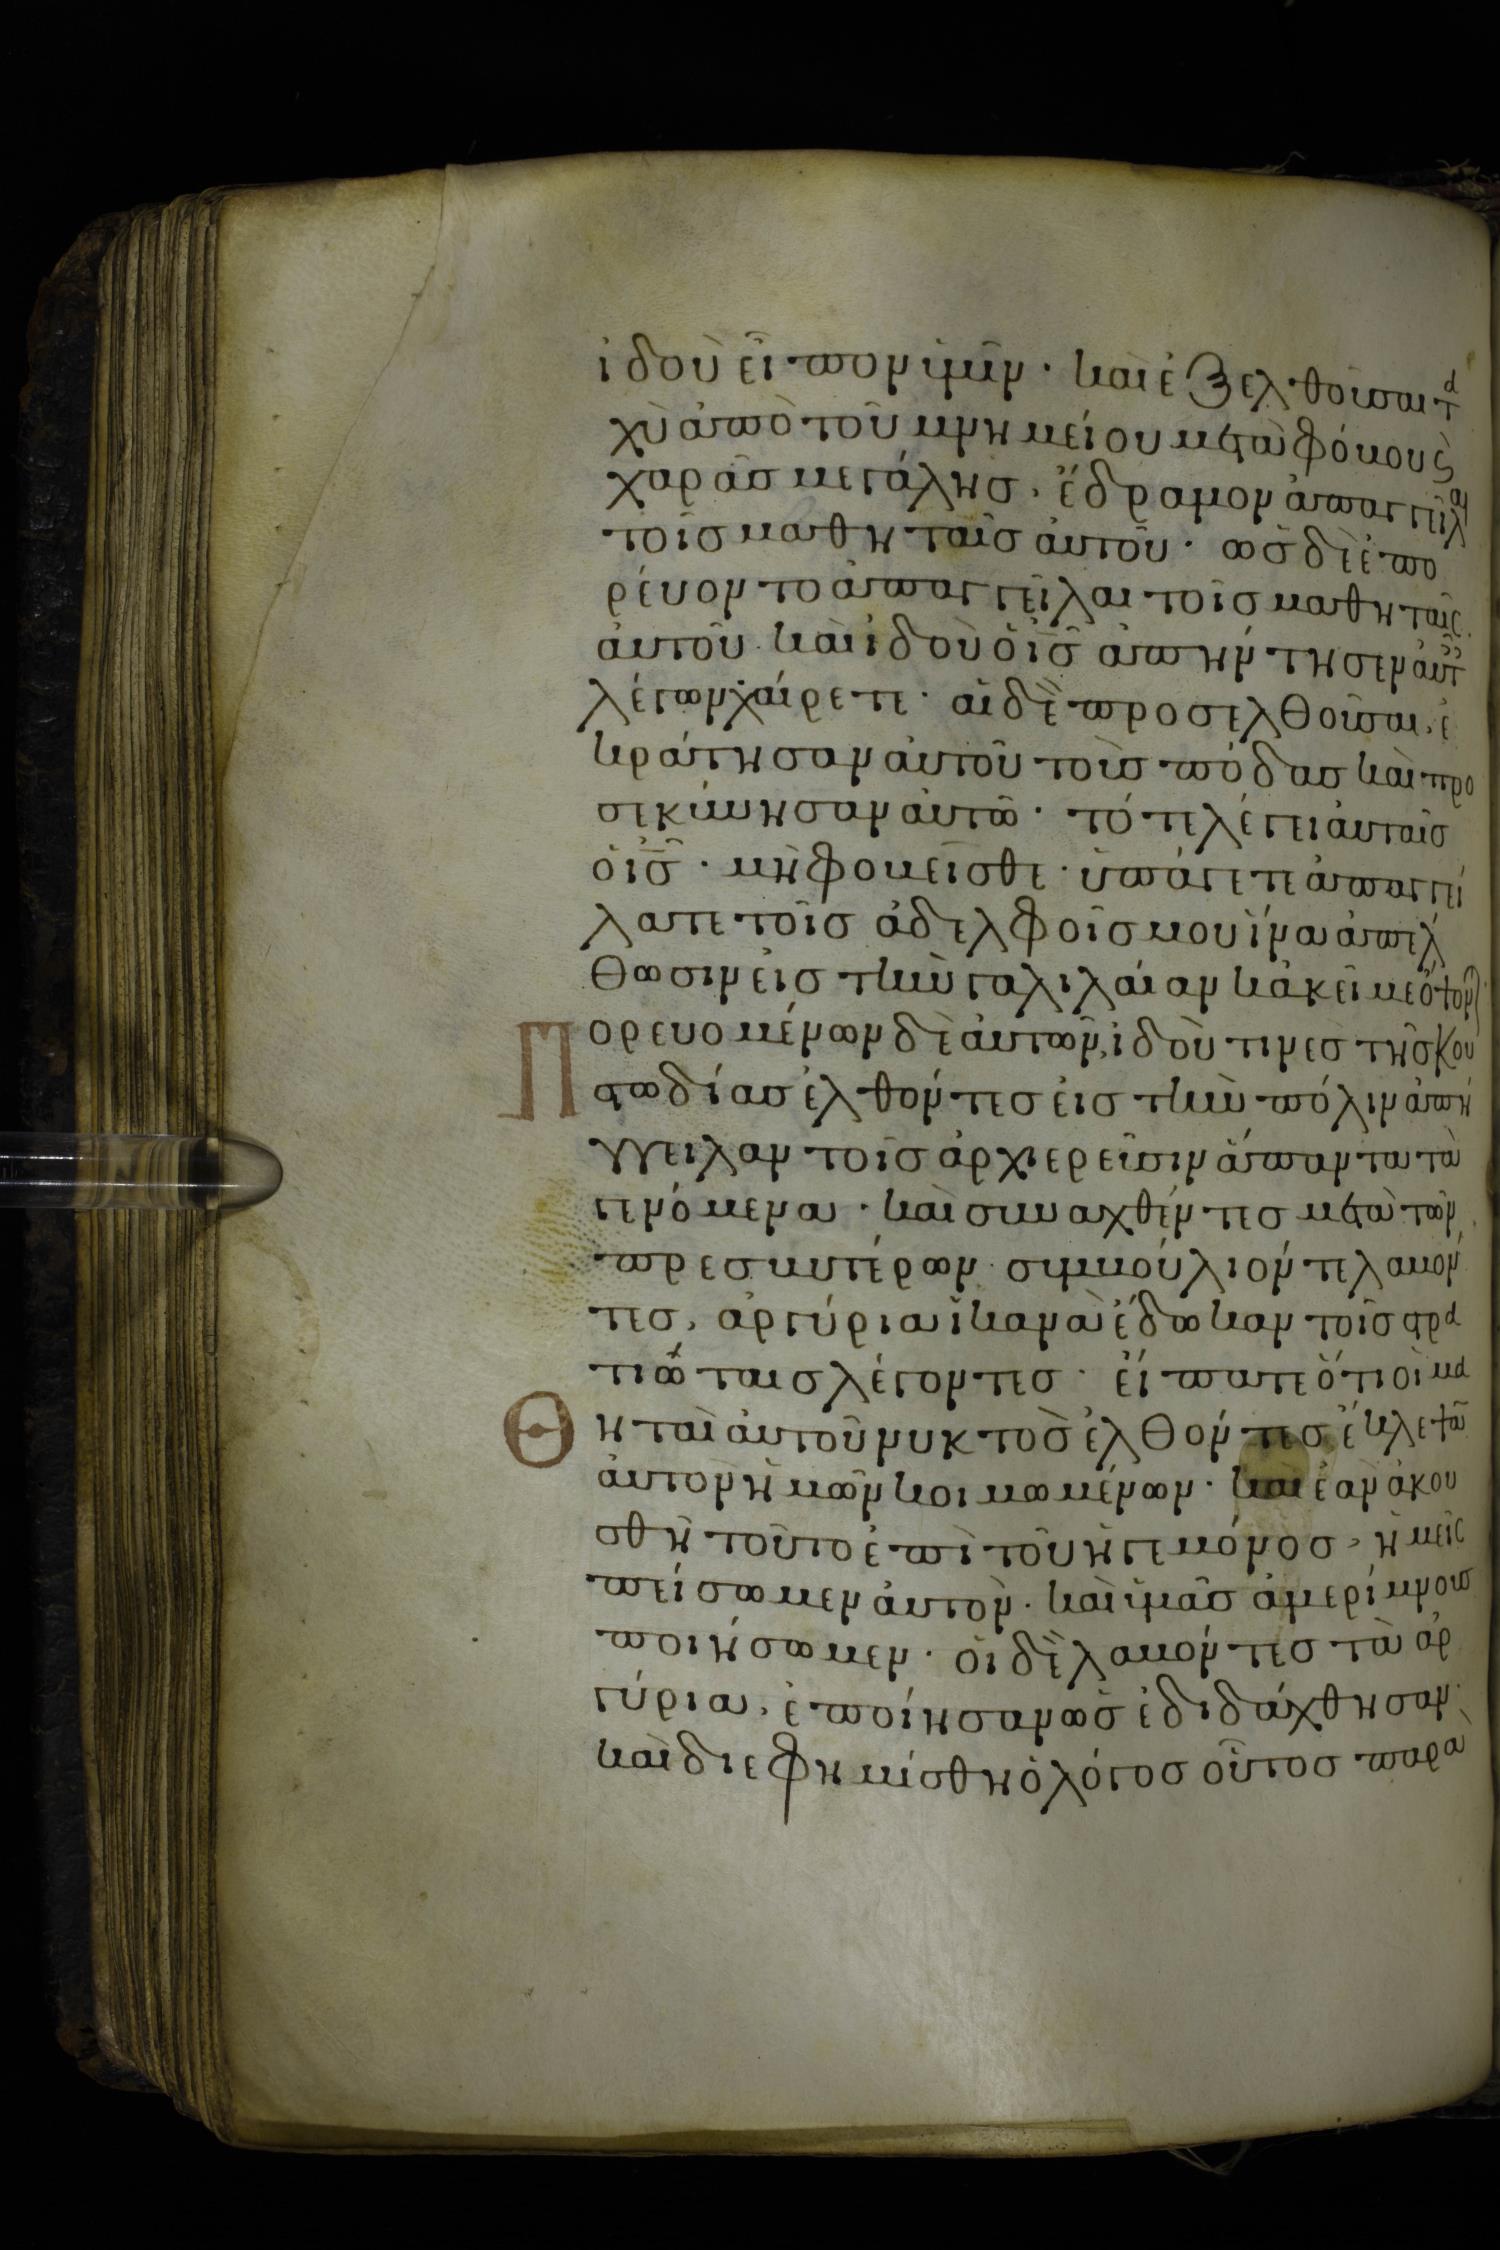 ἰδοὺ εἶπον ὑμῖν · καὶ ἐξελθοῦσαι τα
χὺ ἀπὸ τοῦ μνημείου μετὰ φόβου ϗ
χαρᾶς μεγάλης, ἔδραμον ἀπαγγεῖλαι
τοῖς μαθηταῖς αὐτοῦ · ὡς δὲ ἐπο
ρεύοντο ἀπαγγεῖλαι τοῖς μαθηταῖς
αὐτοῦ καὶ ἰδοὺ ὁ ἰς̅ ἀπήντησεν αὐτ
λέγων χαίρετε · αἱ δὲ προσελθοῦσαι, ἐ
κράτησαν αὐτοῦ τοὺς πόδας καὶ προ
σεκύνησαν αὐτῶ · τότε λέγει αὐταῖς
ὁ ἰς̅ · μὴ φοβεῖσθε · ὑπάγετε ἀπαγγεί
λατε τοῖς ἀδελφοῖς μου ἵνα ἀπέλ
θωσιν εἰς τὴν γαλιλαίαν κἀκεῖ με ὄψον
Πορευομένων δὲ αὐτῶν, ἰδοὺ τινὲς τῆς κου
στωδίας ἐλθόντες εἰς τὴν πόλιν ἀπή
γγειλαν τοῖς ἀρχιερεῦσιν ἅπαντα τὰ
γενόμενα · καὶ συναχθέντες μετὰ τῶν
πρεσβυτέρων συμβούλιόν τε λαβόν
τες, ἀργύρια ἱκανὰ ἔδωκαν τοῖς στρα
τιώταις λέγοντες · εἴπατε ὅτι οἱ μα
Θηταὶ αὐτοῦ νυκτὸς ἐλθόντες ἔκλεψᾱ
αὐτὸν ἡμῶν κοιμωμένων · καὶ ἐὰν ἀκου
σθῆ τοῦτο ἐπὶ τοῦ ἡγεμόνος, ἡμεῖς
πείσωμεν αὐτὸν · καὶ ὑμᾶς ἀμερίμνους
ποιήσωμεν · οἱ δὲ λαβόντες τὰ ἀρ
γύρια, ἐποίησαν ὡς ἐδιδάχθησαν ·
καὶ διεφημίσθη ὁ λόγος οὗτος παρὰ